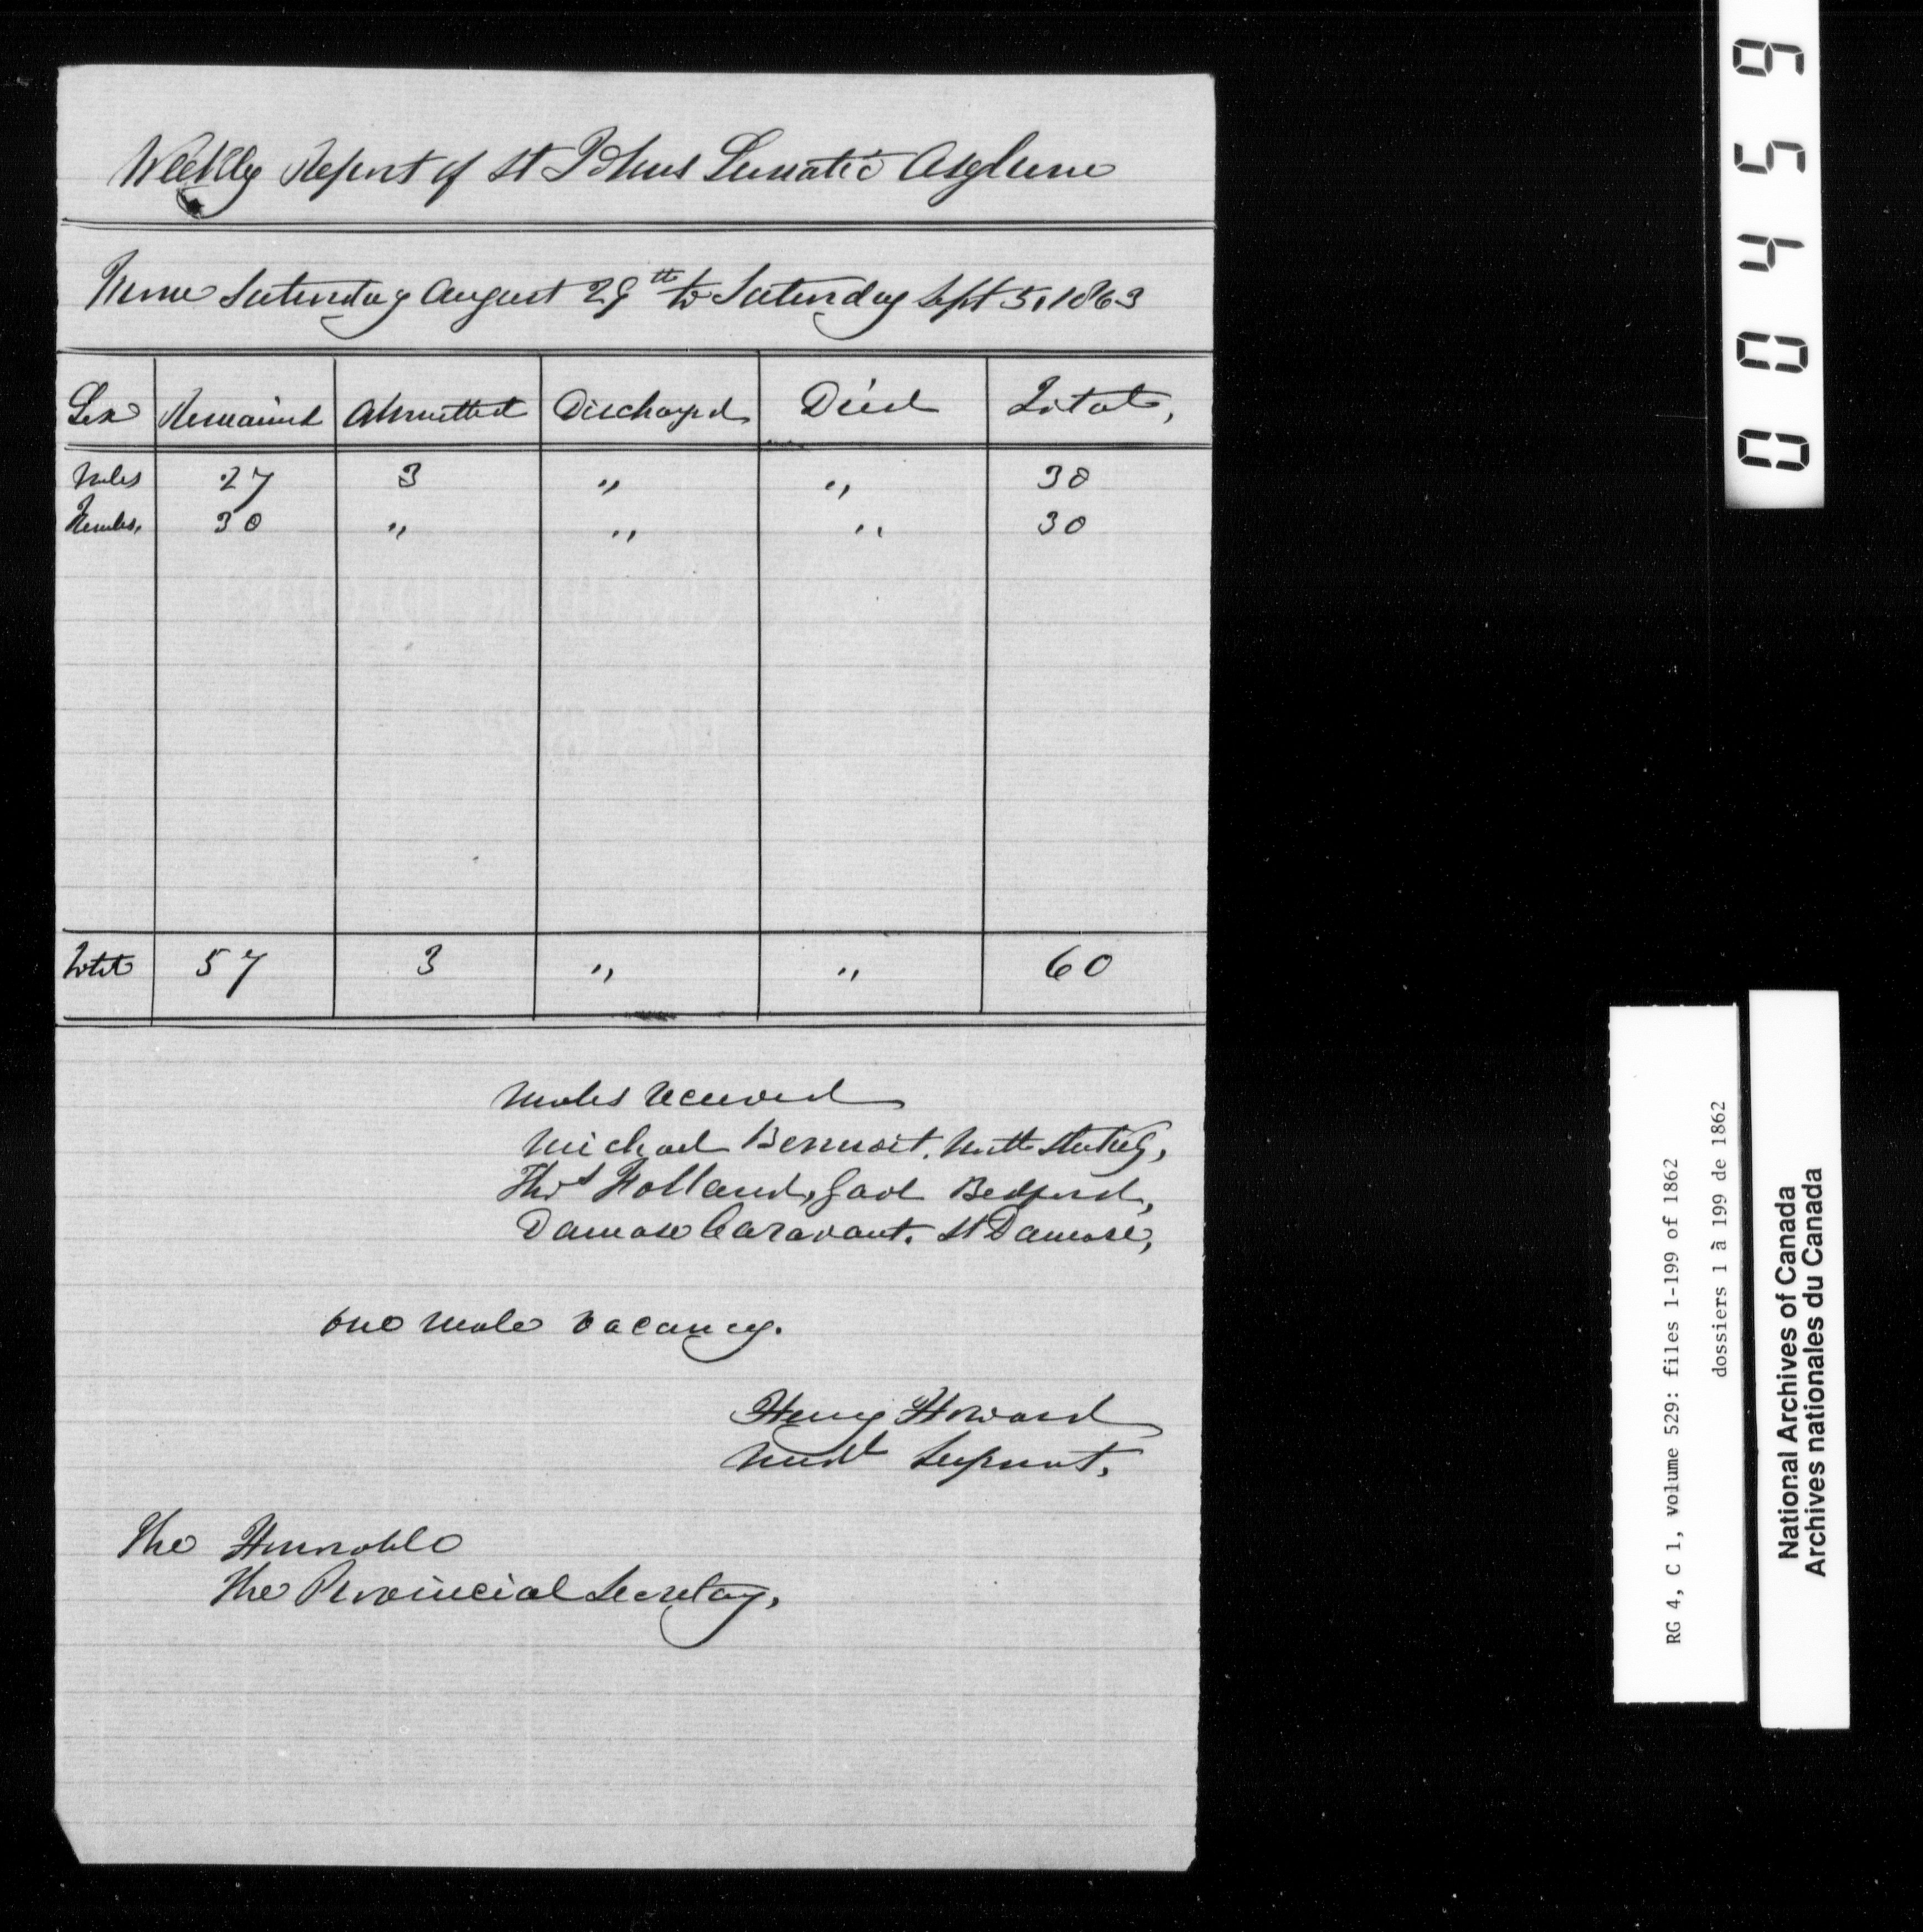 Weekly Report of St Johns Lunatic Asylum
From Saturday August 29th to Saturday Sept 5, 1863
Sex Remained Admitted Discharged Died Total,
Males 27 3 " " 30
Females, 30 " " " 30
Total 57 3 " " 60
Males received
Michael Bennoit.
Thos Holland, Gaol Bedford,
Damase Caravant. St Damase,
One male vacancy.
Henry Howard
Medl Suprnt,
The Honorable
The Provincial Secretary,
00459
RG 4, C 1, volume 529: files 1-199 of 1862
dossiers 1 à 199 de 1862
National Archives of Canada
Archives nationales du Canada